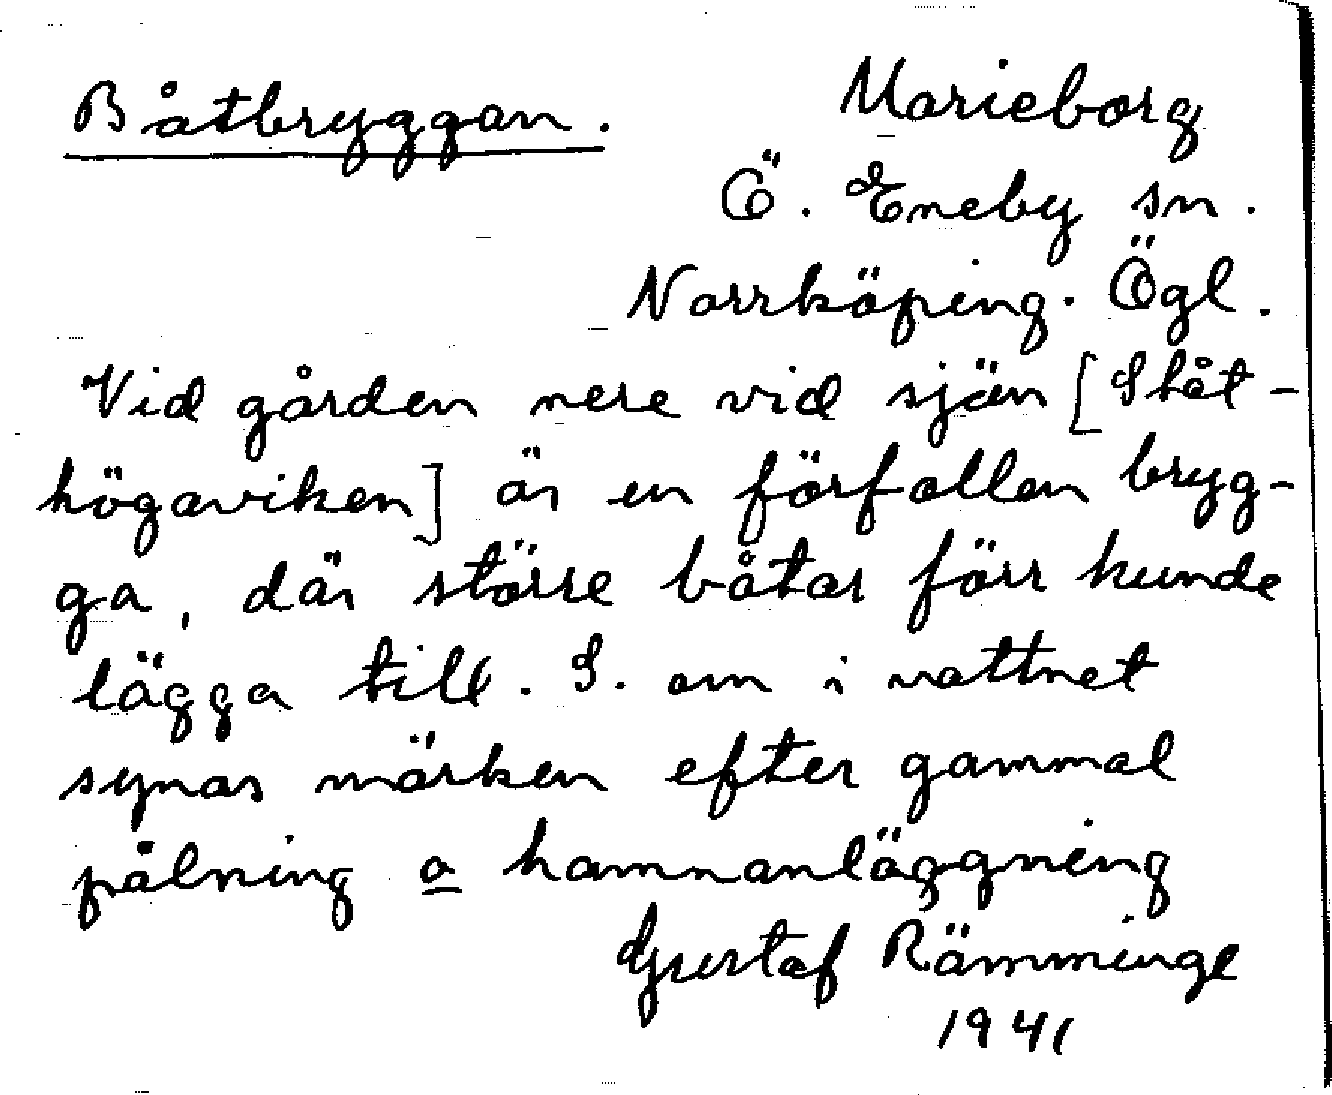 Båtbryggan.
Marieborg
Ö. Eneby sn.
Norrköping. Ögl.
Vid gården nere vid sjön [Ståt-
högaviken] är en förfallen bryg-
ga, där större båtar förr kunde
lägga till. S. om i vattnet
synas märken efter gammal
pålning o hamnanläggning
Gustaf Rämminge
1941